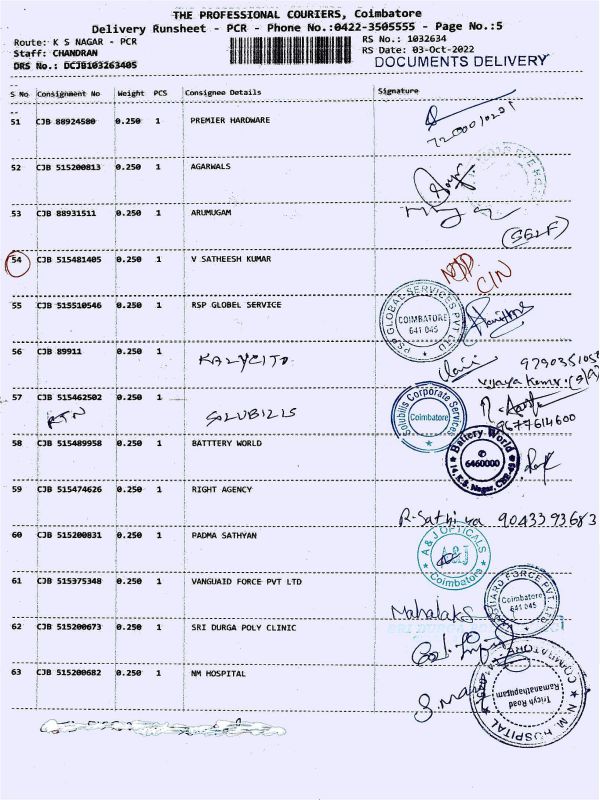 THE PROFESSIONAL COURIERS, Coimbatore
Delivery Runsheet - PCR - Phone No.:0422-3505555 - Page No.:5
Route: K S NAGAR - PCR
RS No.: 1032634
Staff: CHANDRAN
RS Date: 03-Oct-2022
DRS No.: DCJB103263405
DOCUMENTS DELIVERY
S No Consignment No Weight PCS Consignee Details Signature
51 CJB 88924580 0.250 1 PREMIER HARDWARE
52 CJB 515200813 0.250 1 AGARWALS
53 CJB 88931511 0.250 1 ARUMUGAM
(SELF)
54 CJB 515481405 0.250 1 V SATHEESH KUMAR
C/N
55 CJB 515510546 0.250 1 RSP GLOBEL SERVICE
PSP GLOBAL SERVICES PVT LTD
COIMBATORE
641 045
56 CJB 89911 0.250 1 KALYCITO
9790351052
Vijaya Kumar
57 CJB 515462502 0.250 1
RTN SOLUBILLS
Solubilis Corporate Services
Coimbatore
9677614600
58 CJB 515489958 0.250 1 BATTTERY WORLD
Battery World
6460000
14, K.S. Nagar, CBE-45
59 CJB 515474626 0.250 1 RIGHT AGENCY
R-Sathiya 9043393683
60 CJB 515200831 0.250 1 PADMA SATHYAN
A & J OPTICALS
A&J
Coimbatore
61 CJB 515375348 0.250 1 VANGUAID FORCE PVT LTD
FORCE PVT. LTD
Coimbatore
641 045
Mahalaks
62 CJB 515200673 0.250 1 SRI DURGA POLY CLINIC
63 CJB 515200682 0.250 1 NM HOSPITAL
N. M. HOSPITAL
Trichy Road
Ramanathapuram
COIMBATORE